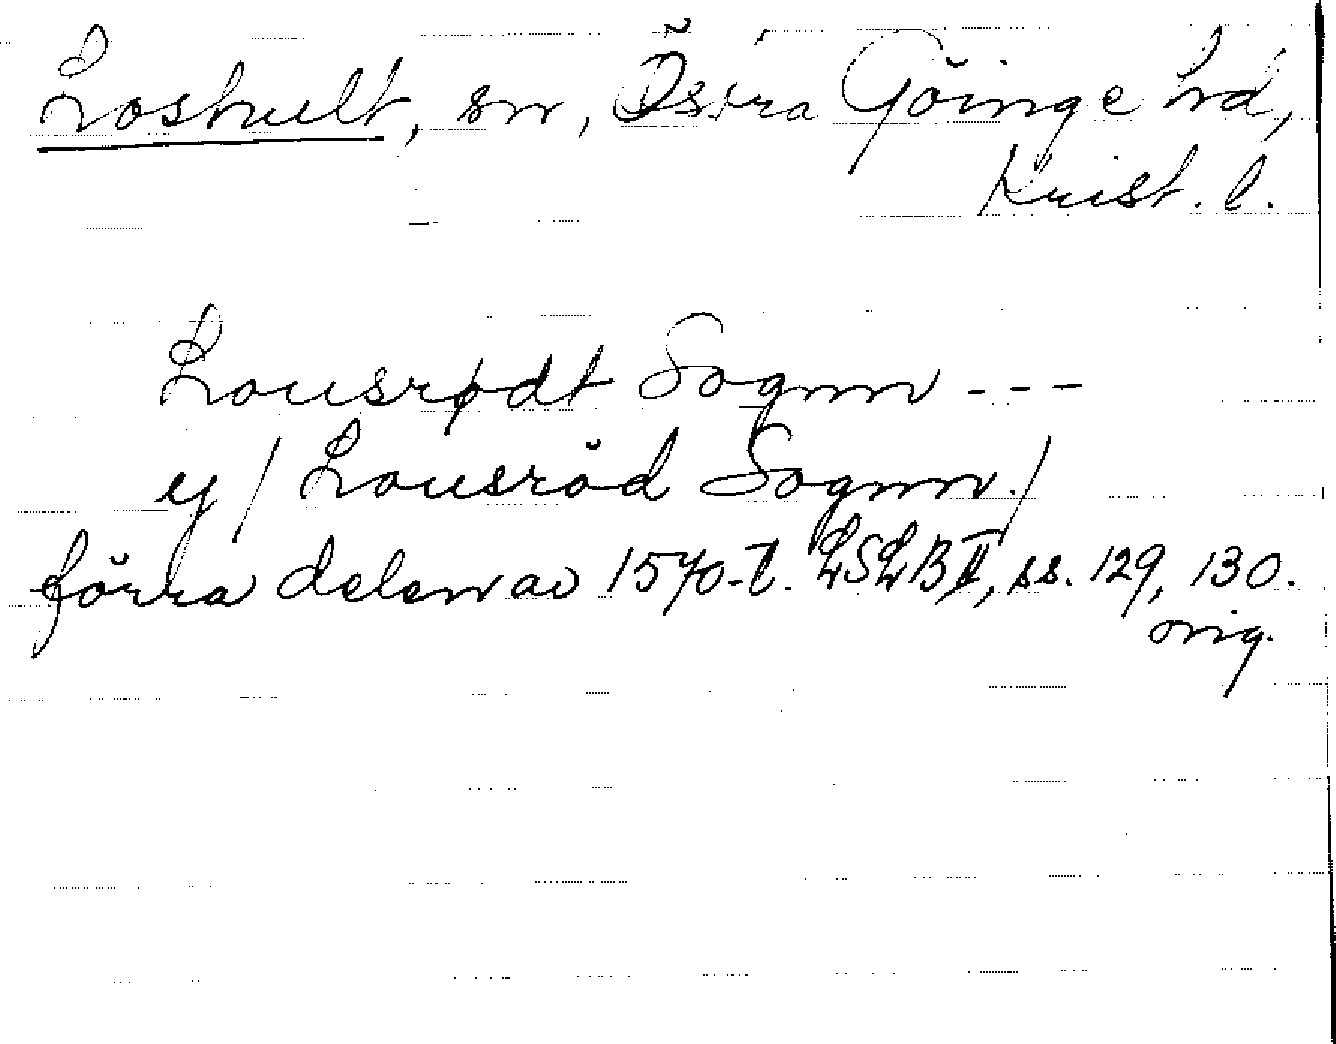 Loshult, sn, Östra Göinge hd,
Krist. l.
Lousrødt Sognn ---
ij / Lousröd Sognn /
förra delen av 1570-t. LSLB II, ss. 129, 130.
orig.